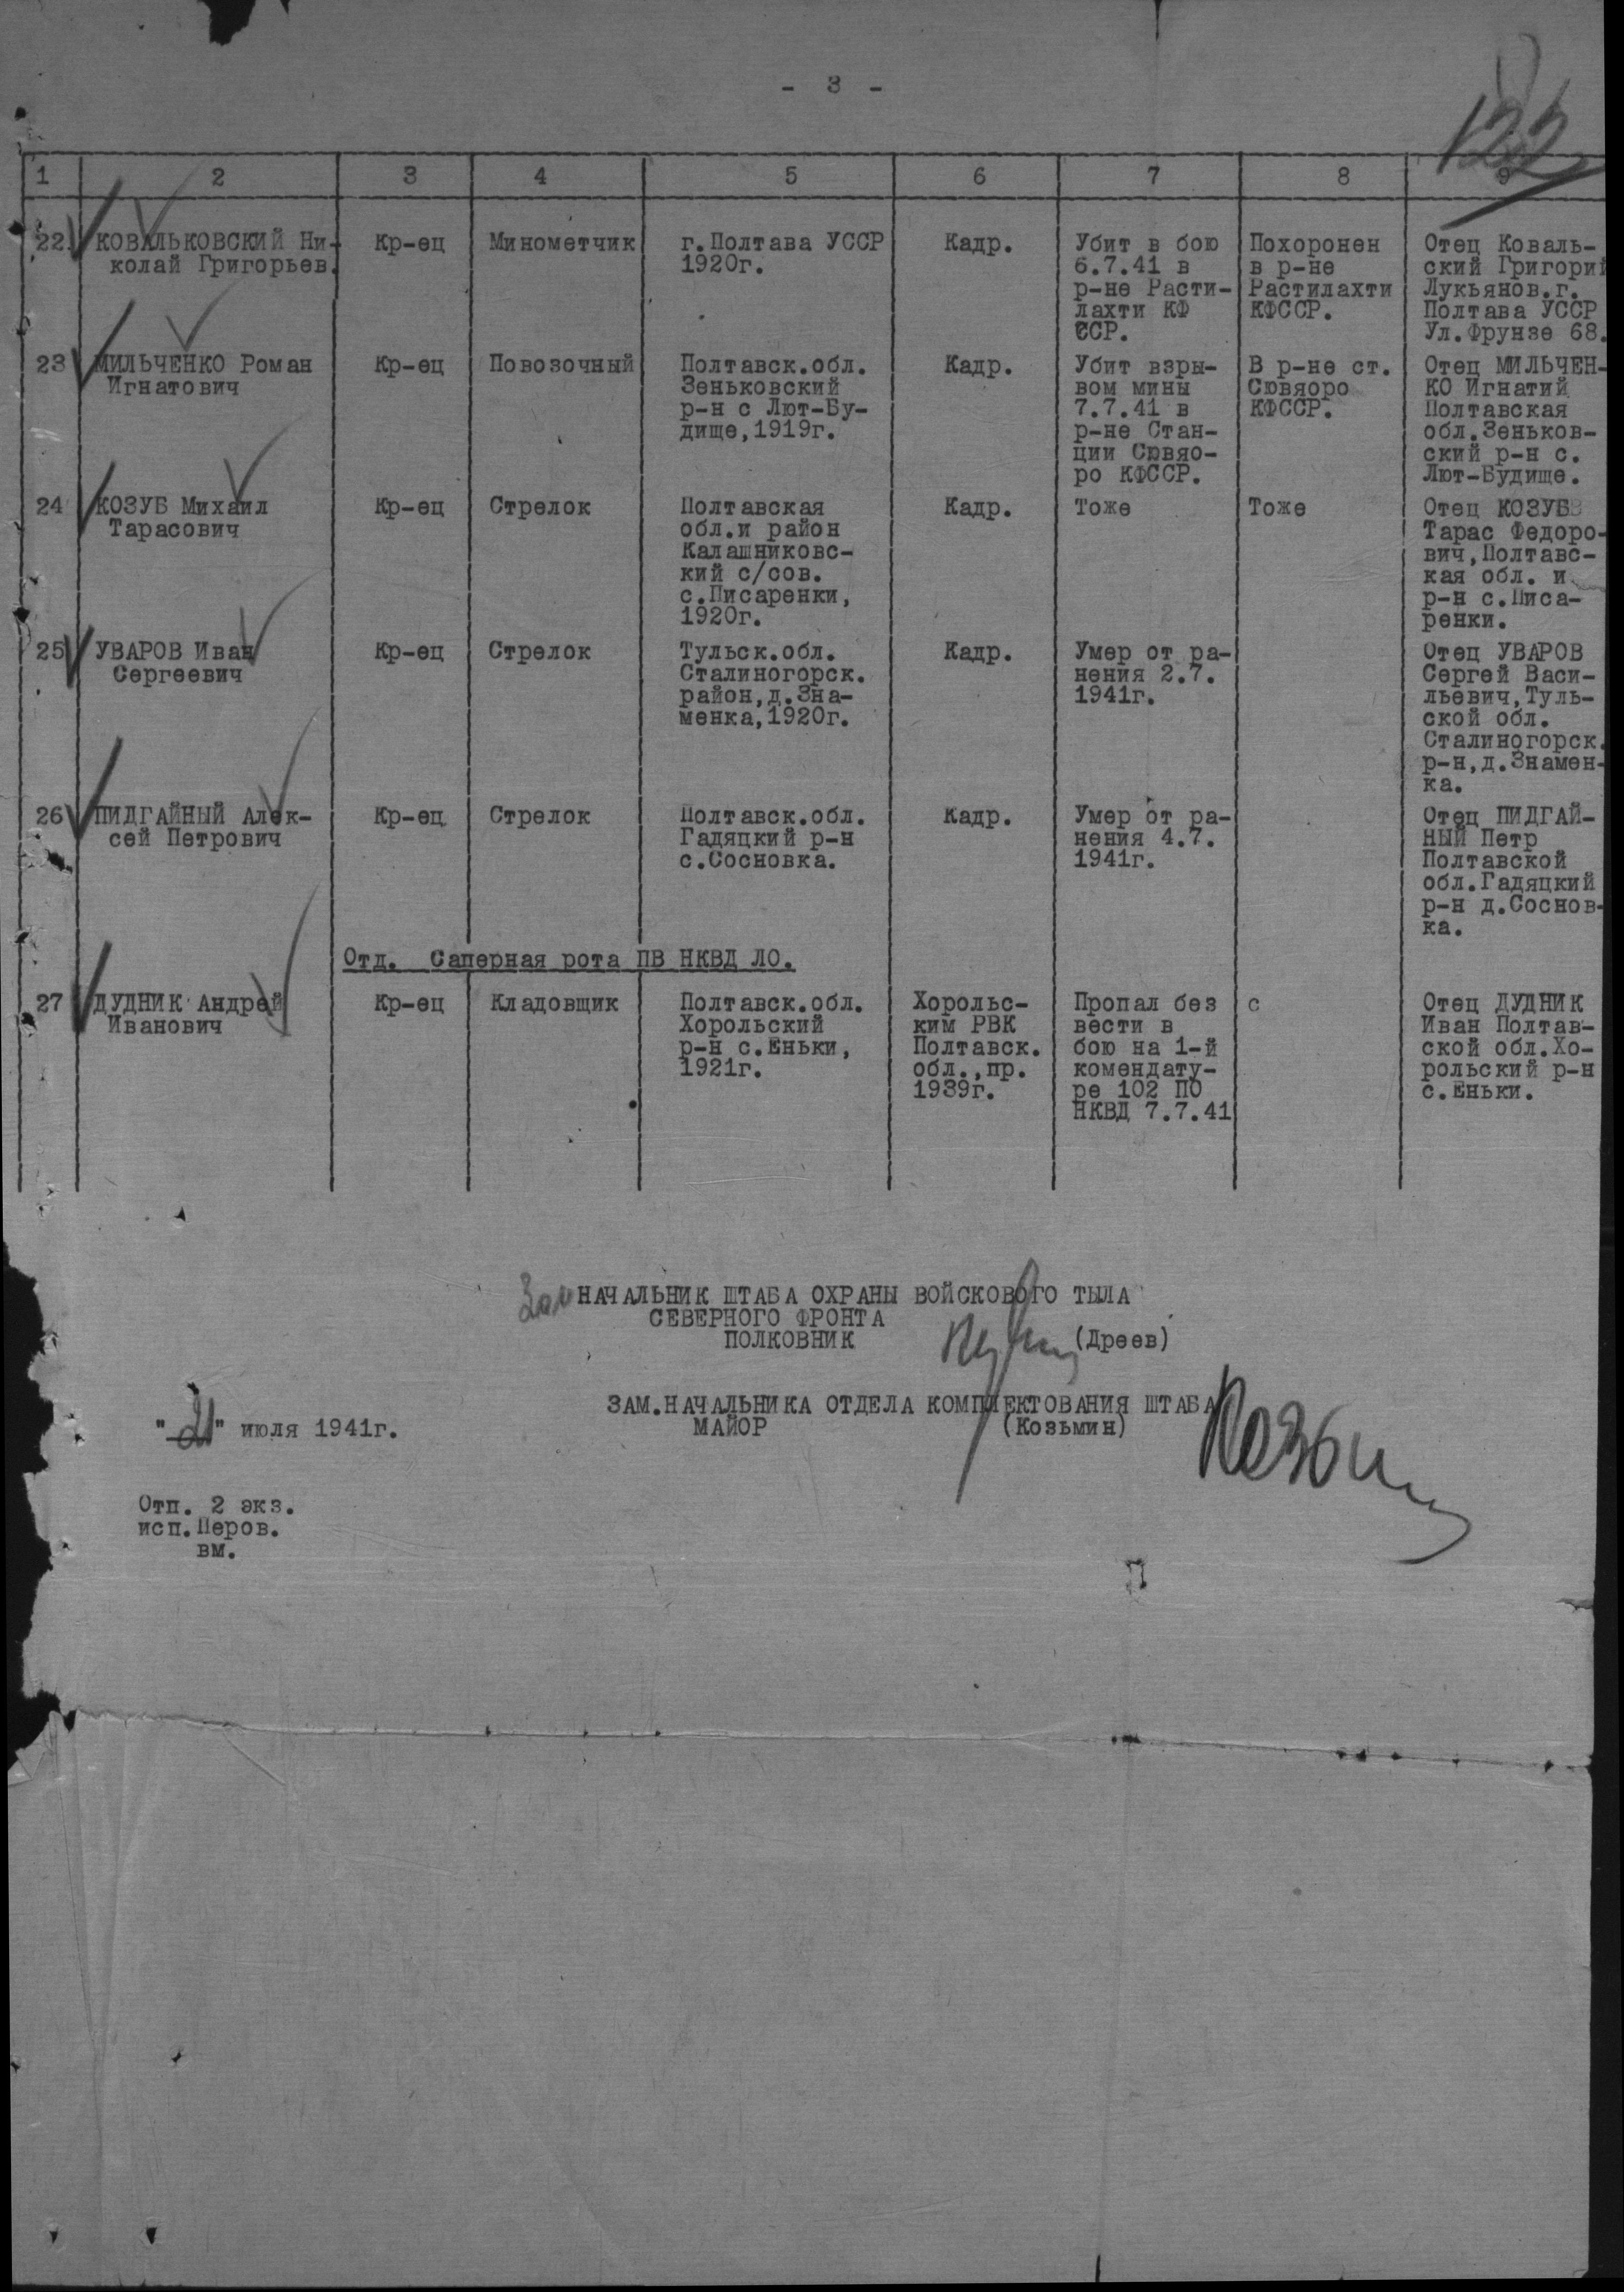 - 3 -
122
1 2 3 4 5 6 7 8 9
22. КОВАЛЬКОВСКИЙ Ни-
колай Григорьев.
Кр-ец
Минометчик
г.Полтава УССР
1920г.
Кадр.
Убит в бою
6.7.41 в
р-не Расти-
лахти КФ
ССР.
Похоронен
в р-не
Растилахти
КФССР.
Отец Коваль-
ский Григорий
Лукьянов.г.
Полтава УССР
Ул.Фрунзе 68.
23 МИЛЬЧЕНКО Роман
Игнатович
Кр-ец
Повозочный
Полтавск.обл.
Зеньковский
р-н с Лют-Бу-
дище,1919г.
Кадр.
Убит взры-
вом мины
7.7.41 в
р-не Стан-
ции Сювяо-
ро КФССР.
В р-не ст.
Сювяоро
КФССР.
Отец МИЛЬЧЕН-
КО Игнатий
Полтавская
обл.Зеньков-
ский р-н с.
Лют-Будище.
24 КОЗУБ Михаил
Тарасович
Кр-ец
Стрелок
Полтавская
обл.и район
Калашниковс-
кий с/сов.
с.Писаренки,
1920г.
Кадр.
Тоже
Тоже
Отец КОЗУБ
Тарас Федоро-
вич,Полтавс-
кая обл. и
р-н с.Писа-
ренки.
25 УВАРОВ Иван
Сергеевич
Кр-ец
Стрелок
Тульск.обл.
Сталиногорск.
район,д.Зна-
менка,1920г.
Кадр.
Умер от ра-
нения 2.7.
1941г.
Отец УВАРОВ
Сергей Васи-
льевич,Туль-
ской обл.
Сталиногорск.
р-н,д.Знамен-
ка.
26 ПИДГАЙНЫЙ Алек-
сей Петрович
Кр-ец
Стрелок
Полтавск.обл.
Гадяцкий р-н
с.Сосновка.
Кадр.
Умер от ра-
нения 4.7.
1941г.
Отец ПИДГАЙ-
НЫЙ Петр
Полтавской
обл.Гадяцкий
р-н д.Соснов-
ка.
Отд. Саперная рота ПВ НКВД ЛО.
27 ДУДНИК Андрей
Иванович
Кр-ец
Кладовщик
Полтавск.обл.
Хорольский
р-н с.Еньки,
1921г.
Хорольс-
ким РВК
Полтавск.
обл.,пр.
1939г.
Пропал без
вести в
бою на 1-й
комендату-
ре 102 ПО
НКВД 7.7.41
с
Отец ДУДНИК
Иван Полтав-
ской обл.Хо-
рольский р-н
с.Еньки.
Зам НАЧАЛЬНИК ШТАБА ОХРАНЫ ВОЙСКОВОГО ТЫЛА
СЕВЕРНОГО ФРОНТА
ПОЛКОВНИК (Дреев)
ЗАМ.НАЧАЛЬНИКА ОТДЕЛА КОМПЛЕКТОВАНИЯ ШТАБА
МАЙОР (Козьмин)
"21" июля 1941г.
Отп. 2 экз.
исп.Перов.
вм.